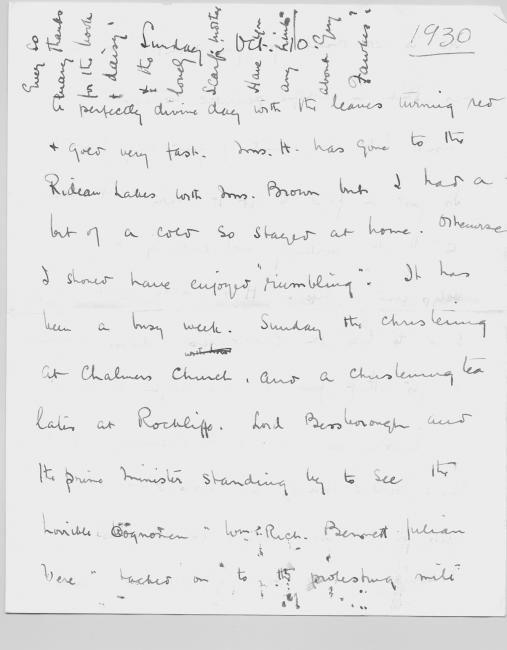 Sunday Oct. 10
1930
Ever so
many thanks
for the book
& daisy
& the
lovely
Scarf mother
Have you
any hints
about Guy
Fawkes?
A perfectly divine day with the leaves turning red
& gold very fast. Mrs. H. has gone to the
Rideau Lakes with Mrs. Brown but I had a
bit of a cold so stayed at home. Otherwise
I should have enjoyed "rumbling". It has
been a busy week. Sunday the christening
at Chalmers Church, and a christening tea
later at Rockliffe. Lord Bessborough and
the prime minister standing by to see the
horrible cognomen "Wm. Rich. Bennett Julian
Vere" tacked on to the protesting mite